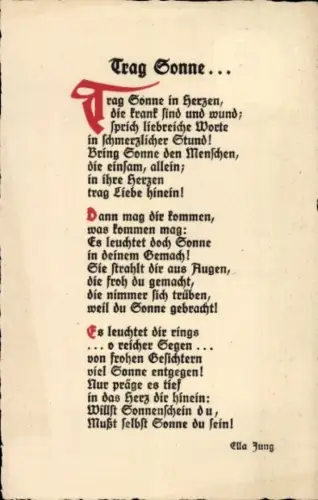 Trag Sonne...
Trag Sonne in Herzen,
die krank sind und wund;
sprich liebreiche Worte
in schmerzlicher Stund!
Bring Sonne den Menschen,
die einsam, allein;
in ihre Herzen
trag Liebe hinein!
Dann mag dir kommen,
was kommen mag:
Es leuchtet doch Sonne
in deinem Gemach!
Sie strahlt dir aus Augen,
die froh du gemacht,
die nimmer sich trüben,
weil du Sonne gebracht!
Es leuchtet dir rings
... o reicher Segen ...
von frohen Gesichtern
viel Sonne entgegen!
Nur präge es tief
in das Herz dir hinein:
Willst Sonnenschein du,
Mußt selbst Sonne du sein!
Ella Jung